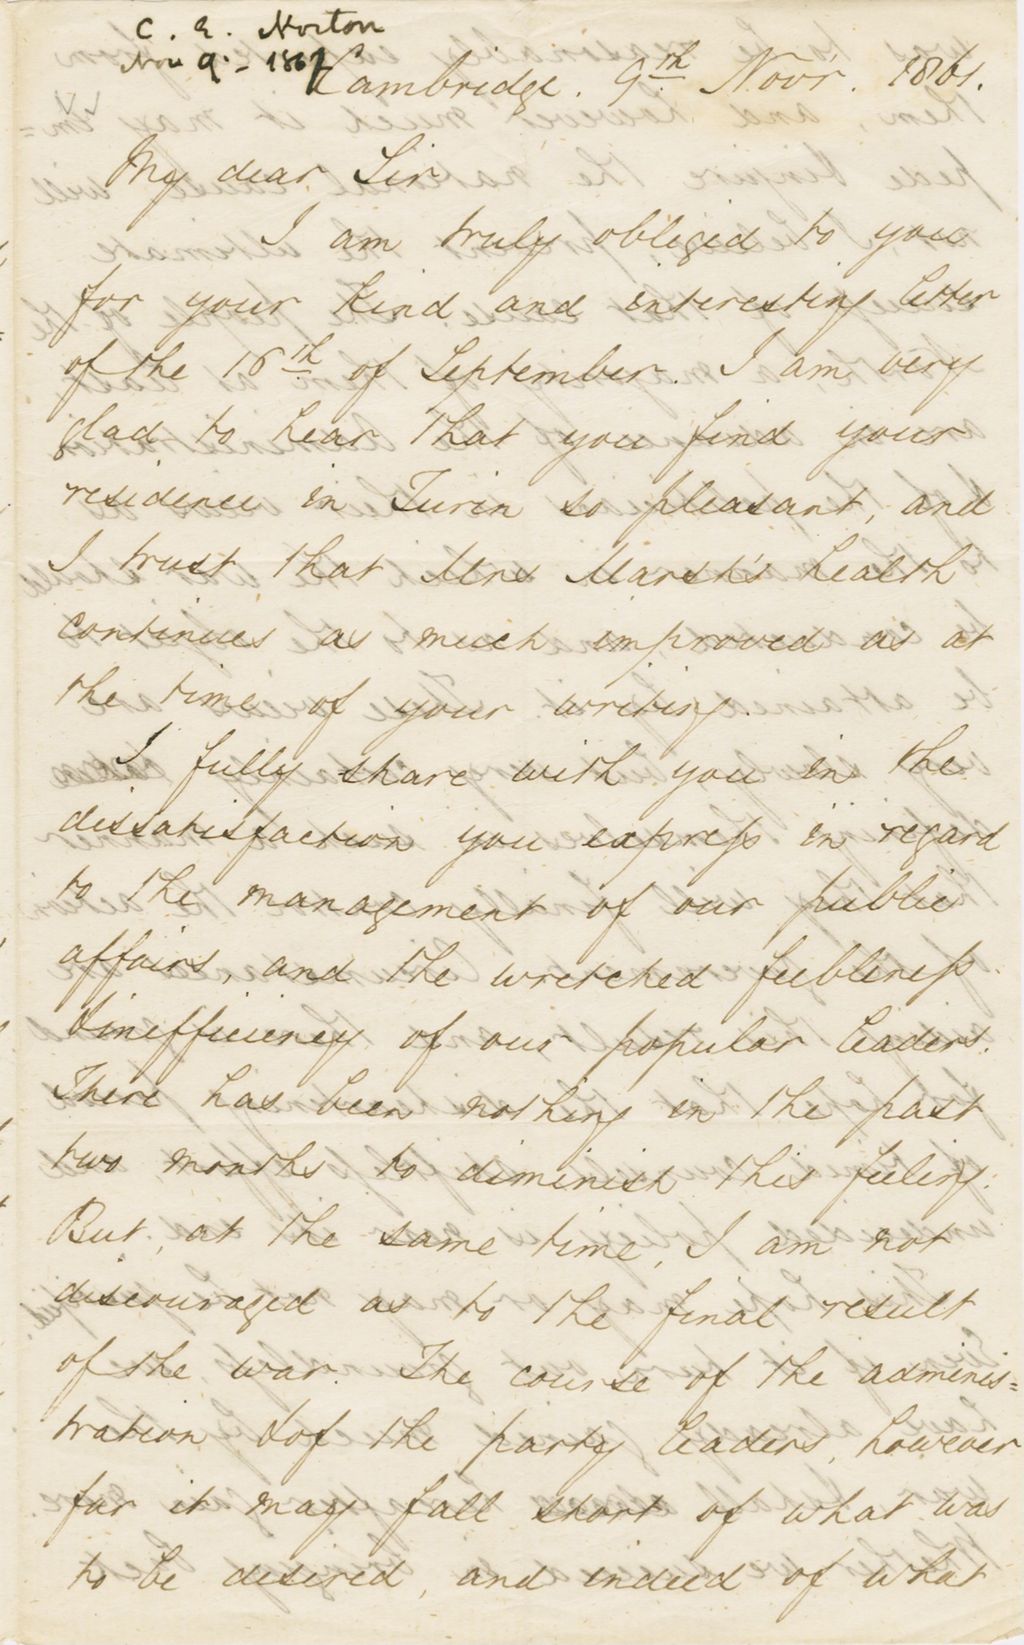 C. E. Norton
Nov 9. - 1861
Cambridge. 9th Novr. 1861.
My dear Sir
I am truly obliged to you
for your kind and interesting letter
of the 16th of September. I am very
glad to hear that you find your
residence in Turin so pleasant, and
I trust that Mrs Marsh's health
continues as much improved as at
the time of your writing.
I fully share with you in the
dissatisfaction you express in regard
to the management of our public
affairs, and the wretched feebleness
& inefficiency of our popular leaders.
There has been nothing in the past
two months to diminish this feeling.
But, at the same time, I am not
discouraged as to the final result
of the war. The course of the adminis=
tration & of the party leaders, however
far it may fall short of what was
to be desired, and indeed of what